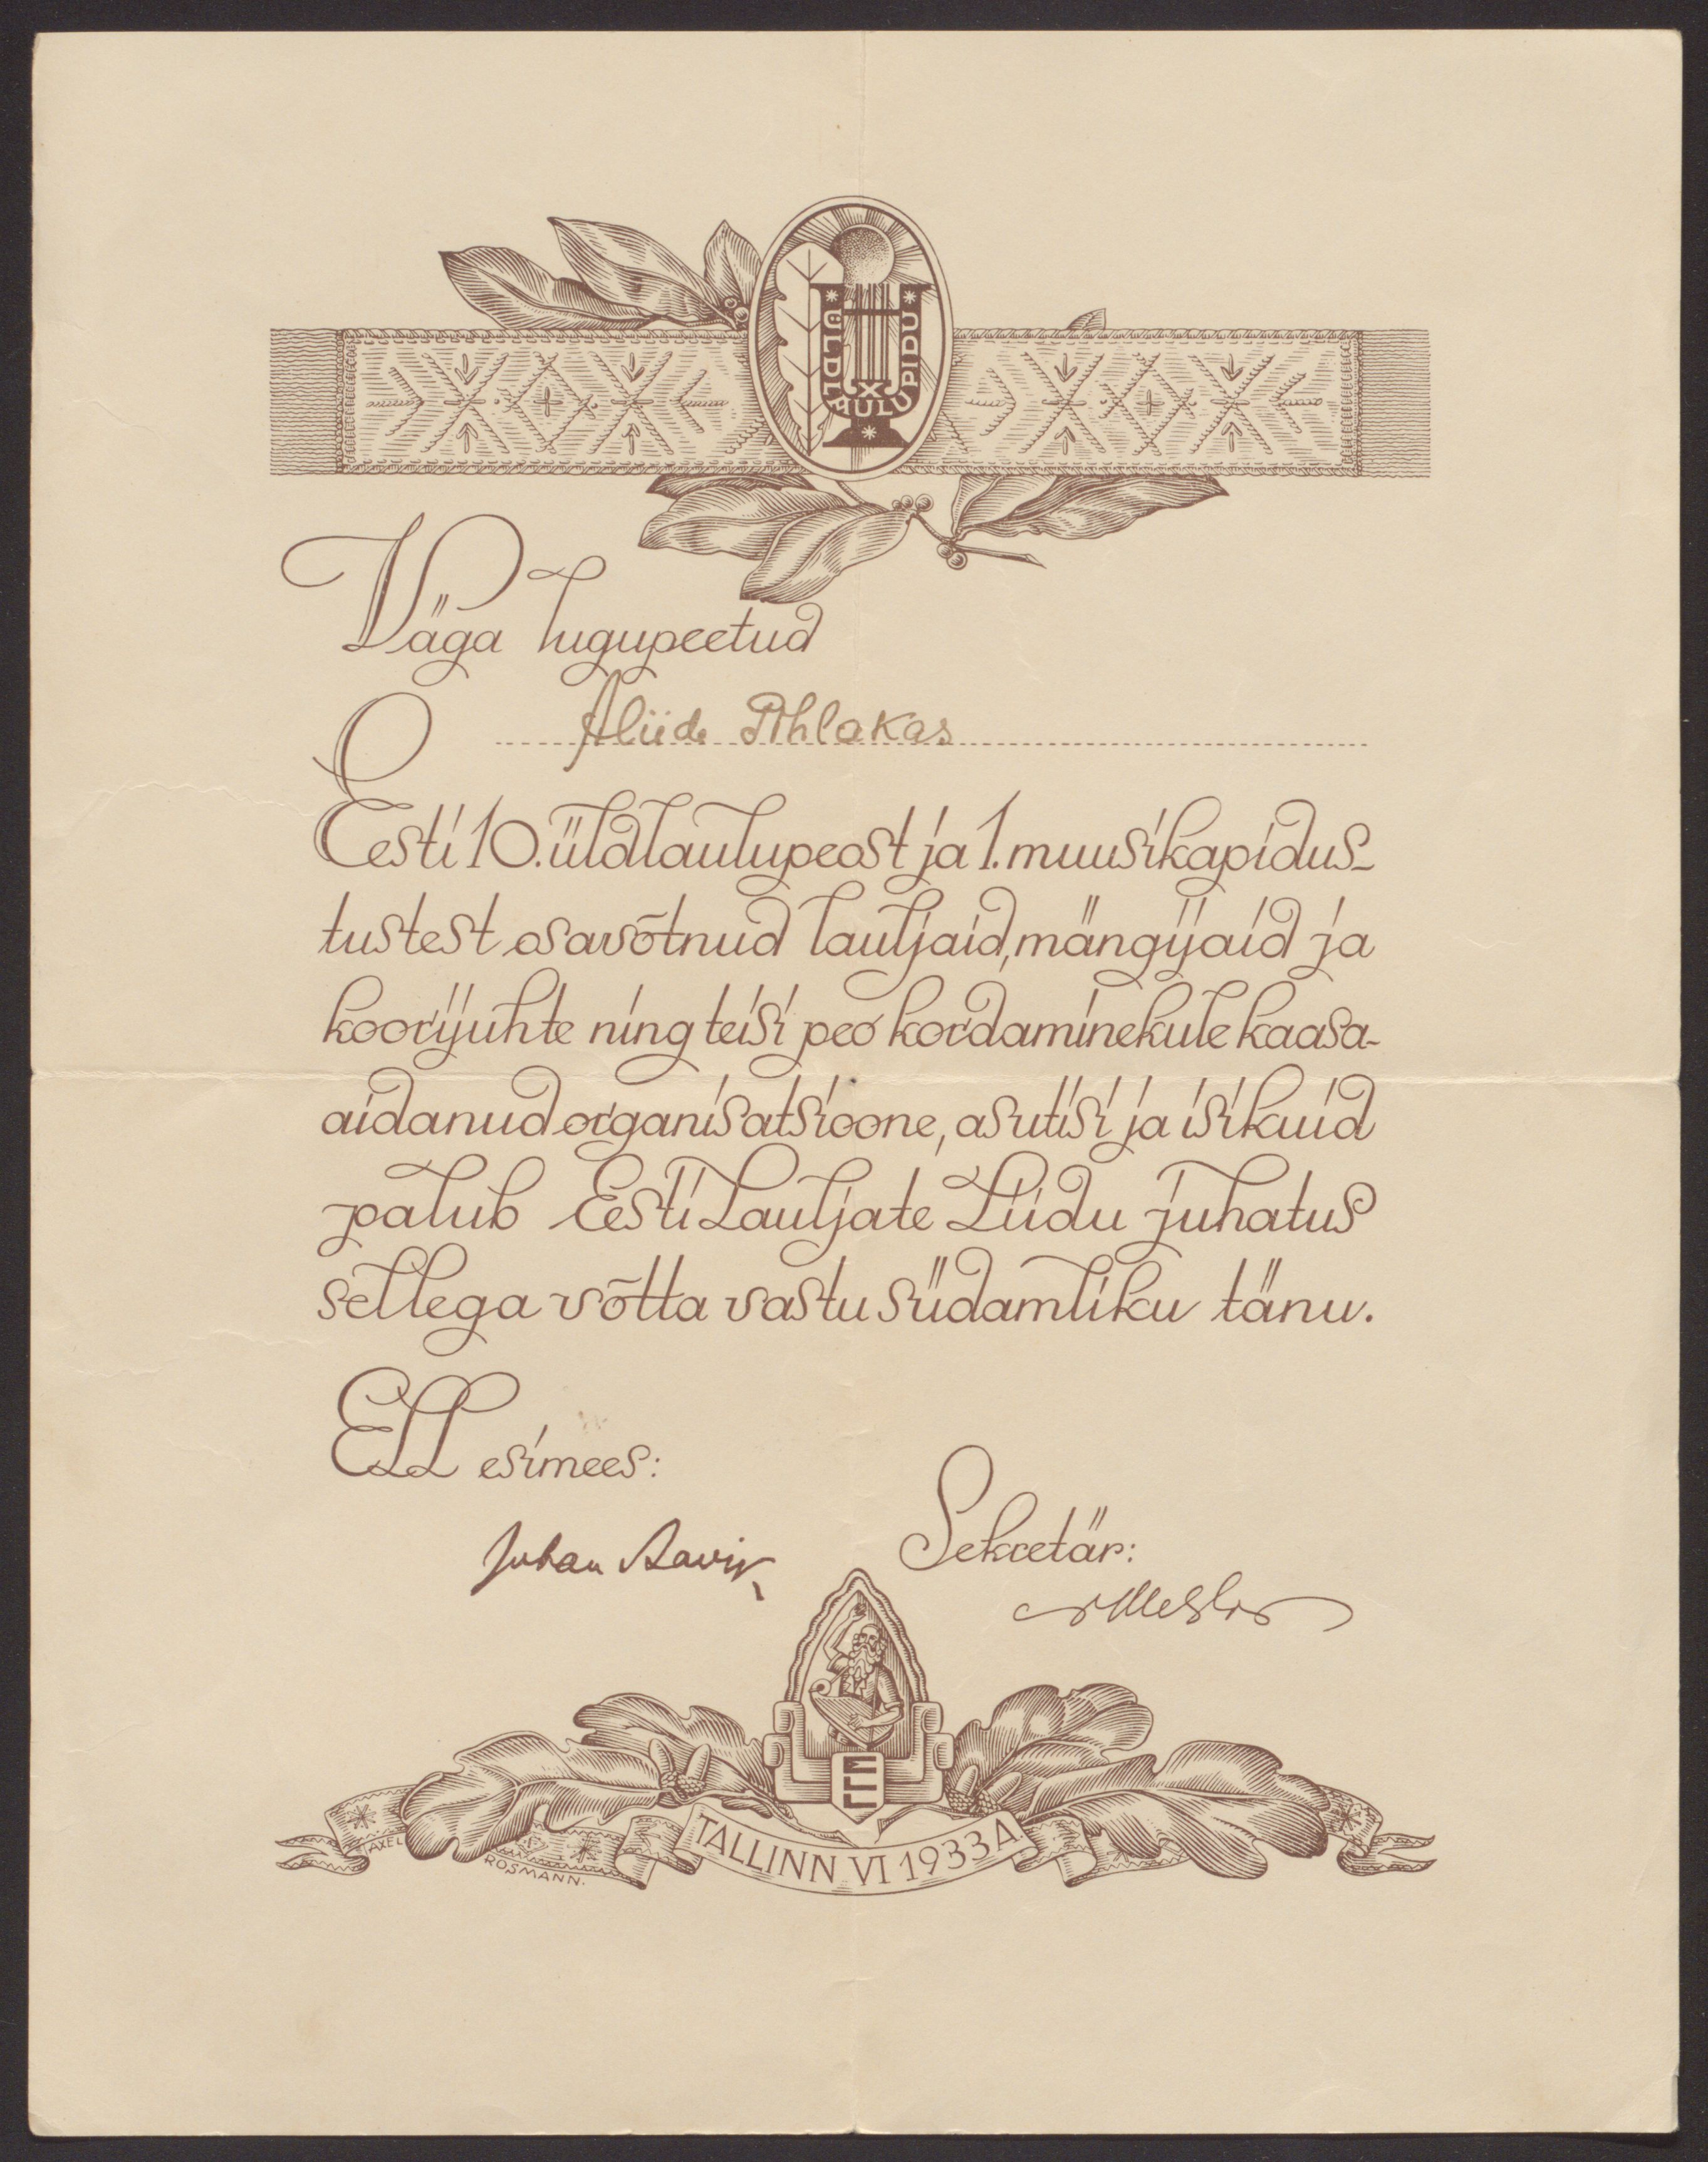 ÜLDLAULUPIDU
X
Väga lugupeetud
Aliide Pihlakas
Eesti 10. üldlaulupeost ja 1. muusikapidus-
tustest osavõtnud lauljaid, mängijaid ja
koorijuhte ning teisi peo kordaminekule kaasa-
aidanud organisatsioone, asutisi ja isikuid
palub Eesti Lauljate Liidu juhatus
sellega võtta vastu südamliku tänu.
ELL esimees:
Juhan Aavik
Sekretär:
ELL
TALLINN VI 1933 A.
AXEL
ROSMANN.